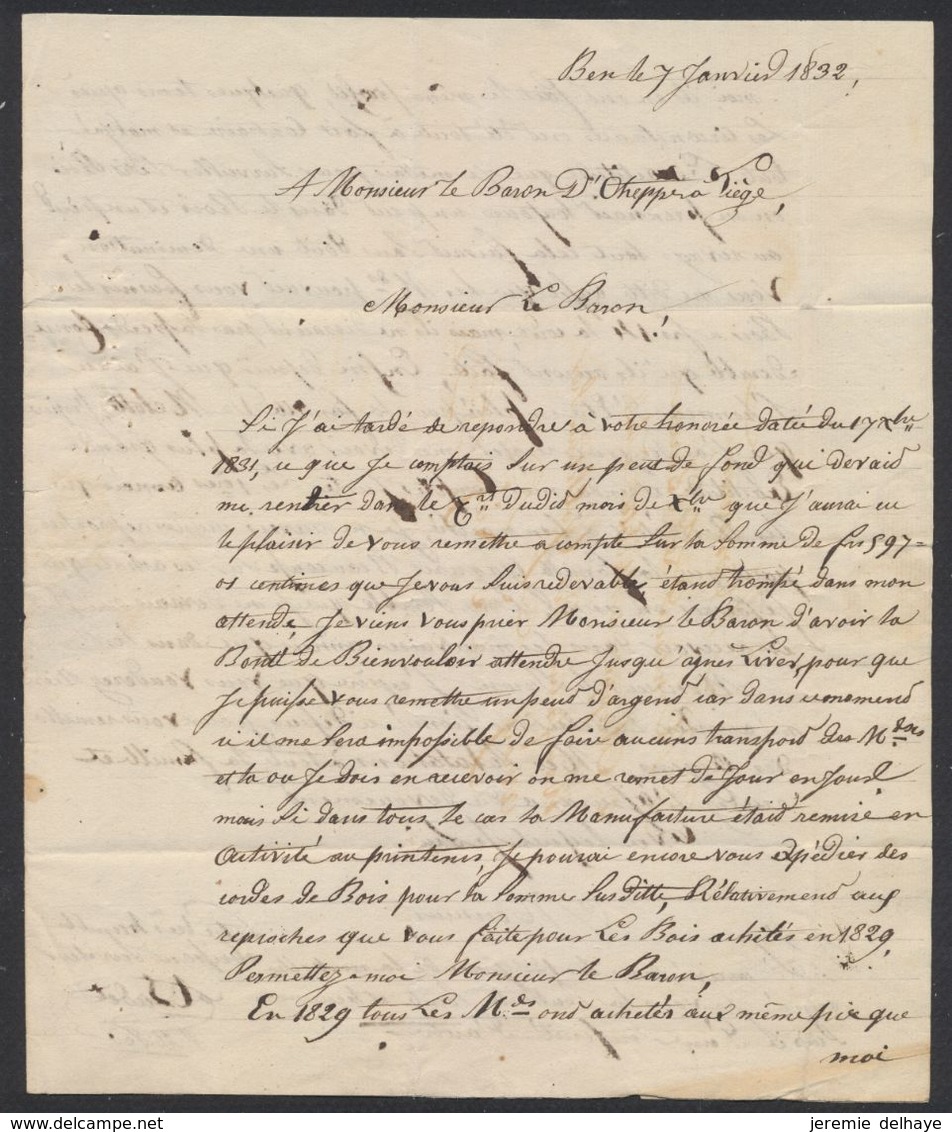 Ben le 7 Janvied 1832,
A Monsieur le Baron D'Otheppe a Liège,
Monsieur Le Baron,
Si J'ai tardé de repondre à votre honorée datée du 17 xbre
1831, ce que Je comptais sur un peut de fond qui devaid
me rentrer dans le Crt Dudid mois de xbre que J'aurai eu
le plaisir de vous remettre a compte sur la Somme de frs 597=
01 centimes que Je vous suis redevable, étand trompé dans mon
attende, Je viens vous prier Monsieur le Baron d'avoir la
Bonté de Bien vouloir attendre Jusqu'aprés L'iver, pour que
Je puisse vous remettre un peud d'argend car dans ce momend
ci il me Sera impossible de faire aucuns transpord des Mdses
et la ou Je dois en recevoir on me remet de Jour en Jour
mais Si dans tous le cas la Manufacture étaid remise en
activité au printems, Je pourai encore vous expédier des
cordes de Bois pour la Somme Susditte, Rélativemend aux
reproches que vous faite pour Les Bois achités en 1829,
Permettez-moi Monsieur le Baron,
En 1829 tous Les Mds ond achetés aux même prix que
moi
jeremie delhaye